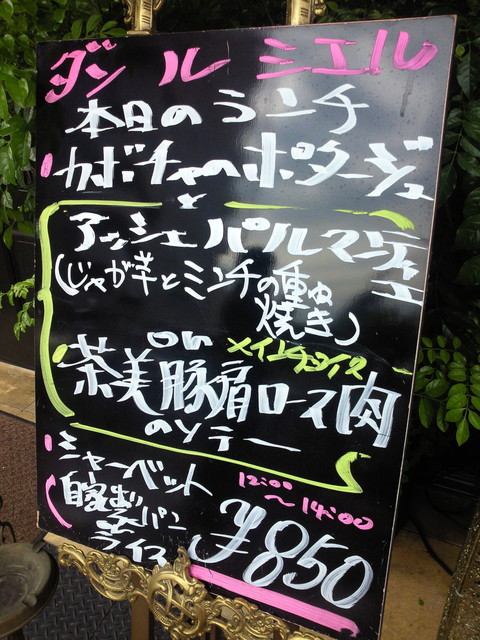 ダン ル シエル
本日のランチ
カボチャのポタージュ
と
アッシェパルマンティエ
(じゃが芋とミンチの重ね
焼き)
on
メインチョイス
茶美豚肩ロース肉
のソテー
シャーベット
12:00
～14:00
自家製
パン
ライス
¥850